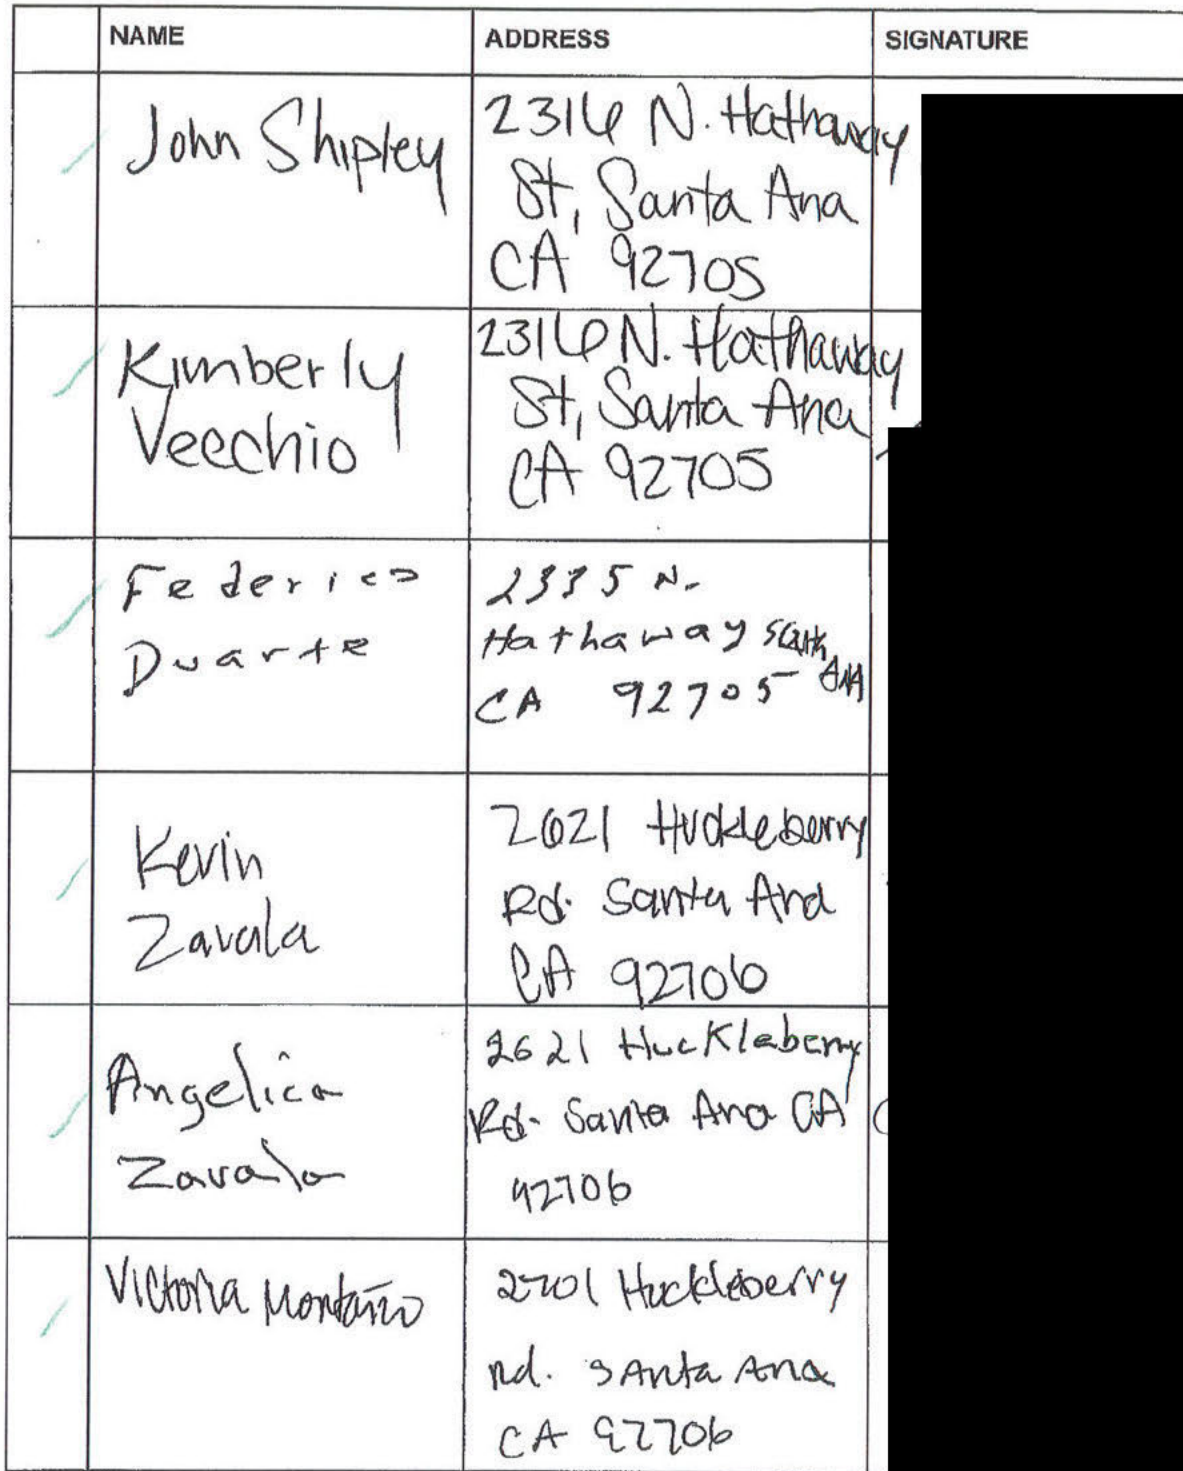 NAME ADDRESS SIGNATURE
John Shipley
2316 N. Hathaway
St, Santa Ana
CA 92705
Kimberly
Vecchio
2316 N. Hathaway
St, Santa Ana
CA 92705
Federico
Duarte
2335 N.
Hathaway Santa
CA 92705 ANA
Kevin
Zavala
2621 Huckleberry
Rd. Santa Ana
CA 92706
Angelica
Zavala
2621 Huckleberry
Rd. Santa Ana CA
92706
Victoria Montaño
2701 Huckleberry
Rd. Santa Ana
CA 92706